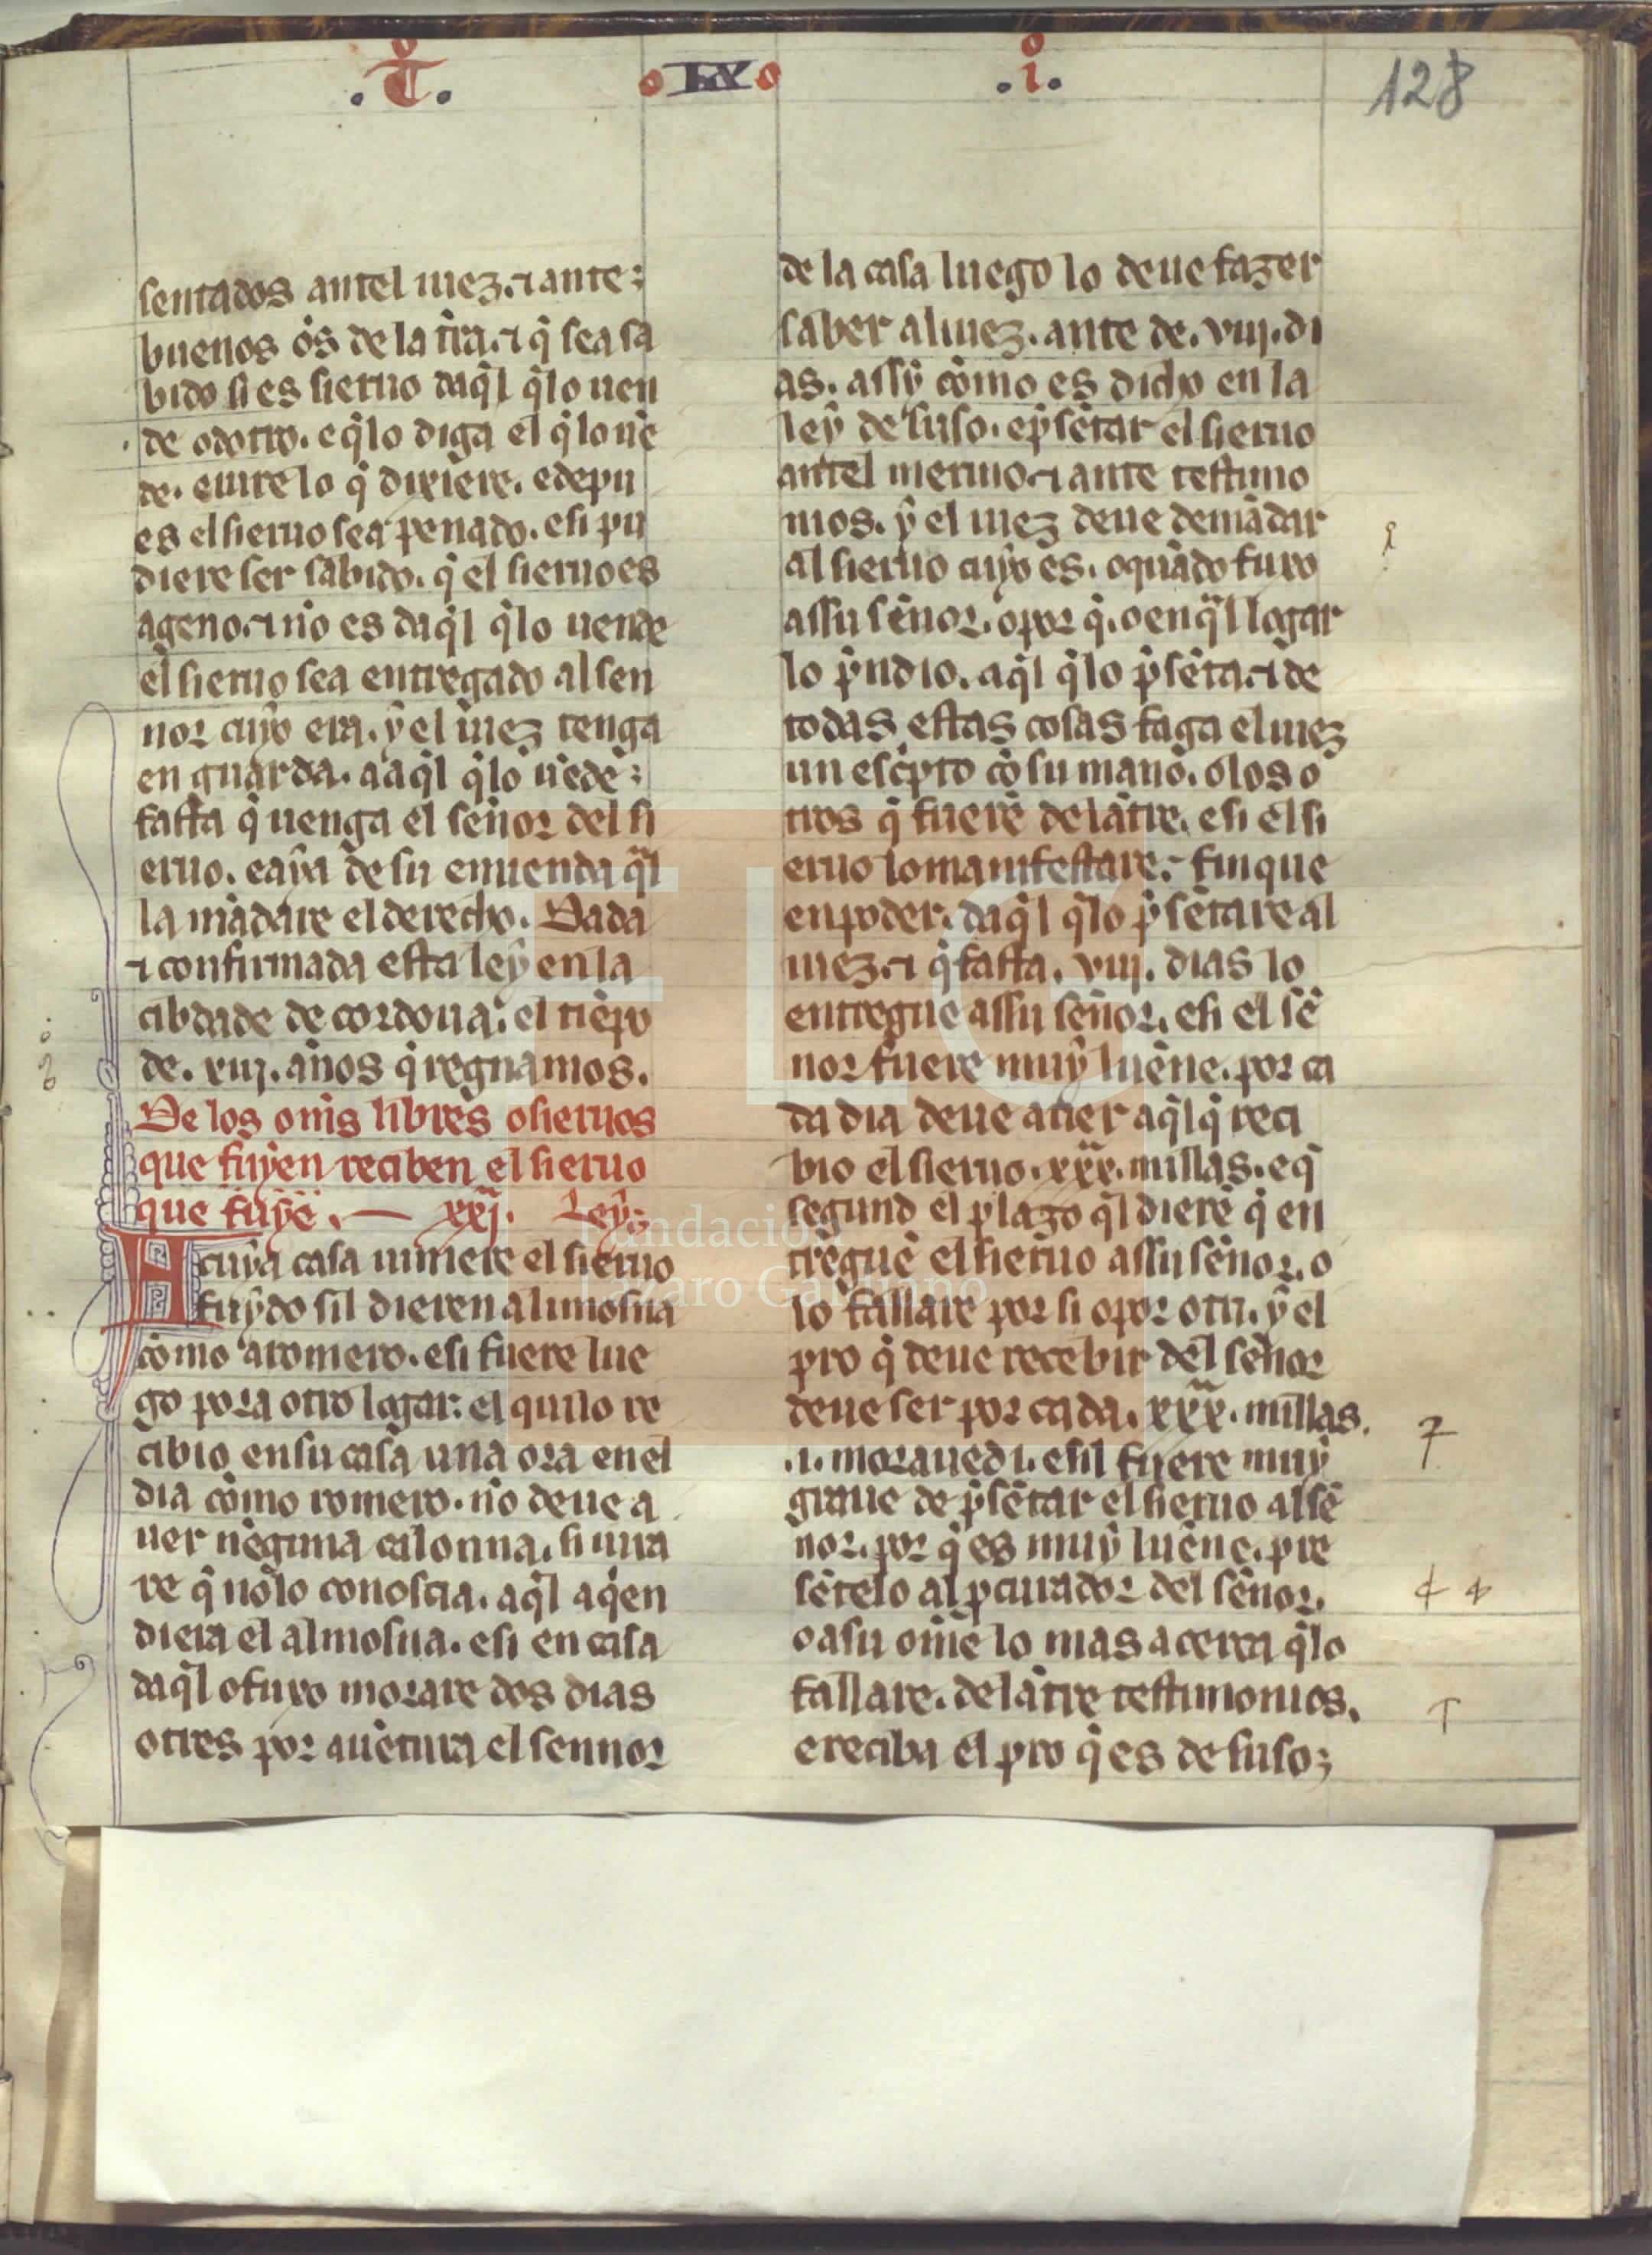 .T̊.
IX
.i̊.
128
sentados antel iuez. ⁊ ante:
buenos o͂s de la tr̃a. ⁊ q̃ sea sa
bido si es sieruo daq̃l q̃lo uen
de odotro. e q̃lo diga el q̃lo uẽ
de. e iure lo q̃ dixiere. e depu
es el sieruo sea penado. esi pu
diere ser sabido. q̃ el sieruo es
ageno. ⁊ no es daq̃l q̃lo uende
el sieruo sea entregado al sen
nor cuyo era. y el iuez tenga
en guarda. a aq̃l q̃lo uẽde:
fasta q̃ uenga el señor del si
eruo. e aya de su emienda q̃l
la mãdare el derecho. Dada
⁊ confirmada esta ley en la
cibdade de cordoua. el tiẽpo
de. xiij. años q̃ regnamos.
De los om̃s libres o sieruos
que fuyen reciben el sieruo
que fuyẽ. — xxj. Ley;
A cuya casa uiniere el sieruo
fuydo sil dieren alimosna
como a romero. esi fuere lue
go pora otro logar: el qui lo re
cibio en su casa una ora en el
dia como romero. no deue a
uer nẽguna calonna. si iura
re q̃ nõlo conoscia. aq̃l aq̃en
diera el almosna. esi en casa
daq̃l o fuxo morare dos dias
o tres por auẽtura el sennor
de la casa luego lo deue fazer
saber al iuez. ante de. viij. di
as. assy como es dicho en la
ley de suso. e p̃sẽtar el sieruo
antel merino. ⁊ ante testimo
nios. y el iuez deue demãdar
al sieruo cuyo es. o quãdo fuxo
assu señor. o por q̃. o en q̃l logar
lo p̃ndio. aq̃l q̃lo p̃sẽta. ⁊ de
todas estas cosas faga el iuez
un esc̃pto cõ su mano. o los o
tros q̃ fuerẽ delãtre. esi el si
eruo lo manifestare: finque
en poder. daq̃l q̃lo p̃sẽtare al
iuez. ⁊ q̃ fasta. viij. dias lo
entregue assu señor. esi el sẽ
nor fuere muy luẽne. por ca
da dia deue auer aq̃l q̃ reci
bio el sieruo. xxx. millas. e q̃
segund el plazo q̃l dierẽ q̃ en
tregue el sieruo assu señor. o
lo fallare por si o por otri. y el
pro q̃ deue recebir del señor
deue ser por cada. xxx. millas.
.i. morauedi. esil fuere muy
graue de p̃sẽtar el sieruo al sẽ
nor. por q̃ es muy luẽne. pre
sẽtelo al p̃curador del señor.
o asu ome lo mas acerca q̃lo
fallare. delãtre testimonios.
e reciba el pro q̃ es de suso;
FLG
Fundación
Lázaro Galdiano